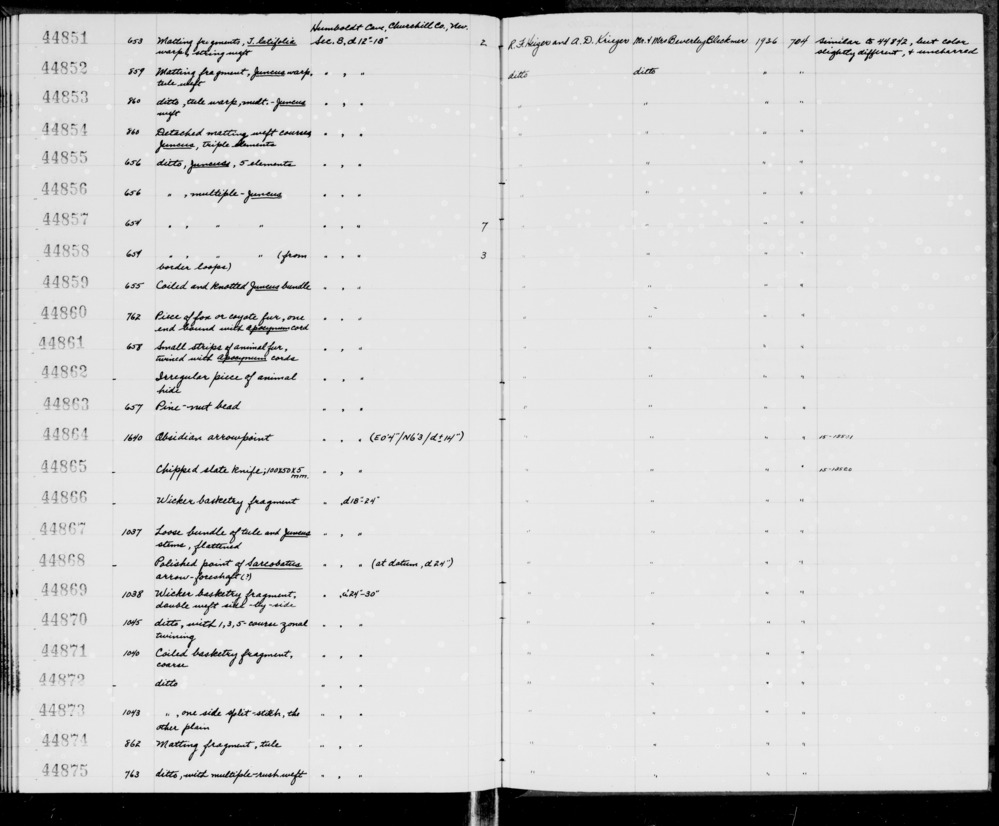 Humboldt Cave, Churchill Co., Nev.
44851 653 Matting fragments, T. latifolia Sec. B, d 12"-18" 2 R.F. Heizer and A.D. Krieger Mr. & Mrs Beverly Blackmer 1936 704 similar to 44842, but color
warp, string weft slightly different, & uncharred
44852 859 Matting fragment, Juncus warp, " " " ditto ditto " "
tule weft
44853 860 ditto, tule warp, mult.-Juncus " " " " " " "
weft
44854 860 Detached matting weft courses " " " " " " "
Juncus, triple elements
44855 656 ditto, Juncus, 5 elements " " " " " " "
44856 656 " , multiple-Juncus " " " " " " "
44857 654 " " " " " " " 7 " " " "
44858 659 " " " " (from " " " 3 " " " "
border loops)
44859 655 Coiled and knotted Juncus bundle " " " " " " "
44860 762 Piece of fox or coyote fur, one " " " " " " "
end bound with apocynum cord
44861 658 Small strips of animal fur, " " " " " " "
twined with apocynum cords
44862 - Irregular piece of animal " " " " " " "
hide
44863 657 Pine-nut bead " " " " " " "
44864 1640 Obsidian arrowpoint " " (E0'4"/N6'3/d±14") " " " "
44865 - Chipped slate knife; 100x50x5 " " " " " " "
mm.
44866 Wicker basketry fragment " , d18"-24" " " " "
44867 1037 Loose bundle of tule and Juncus " " " " " " "
stems, flattened
44868 - Polished point of Sarcobatus " " " (at datum, d 24") " " " "
arrow-foreshaft (?)
44869 1038 Wicker basketry fragment, " , d24"-30" " " " "
double weft side-by-side
44870 1045 ditto, with 1,3,5-course zonal " " " " " " "
twining
44871 1040 Coiled basketry fragment, " " " " " " "
coarse
44872 - ditto " " " " " " "
44873 1043 " , one side split-stitch, the " " " " " " "
other plain
44874 862 Matting fragment, tule " " " " " " "
44875 763 ditto, with multiple-rush weft " " " " " " "